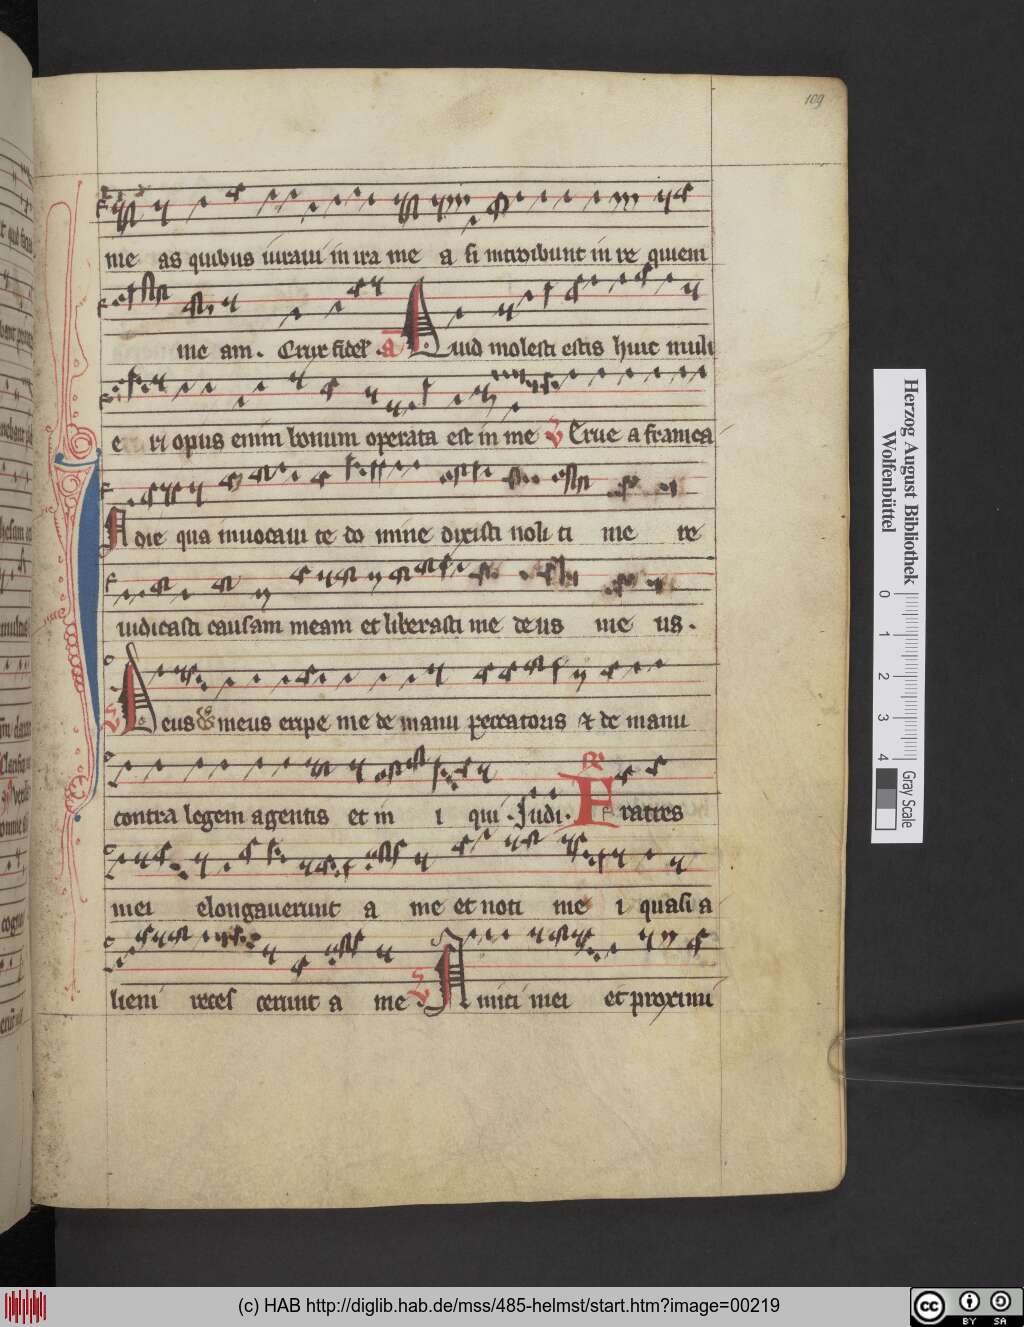 109
me as quibus iuraui in ira me a si introibunt in re quiem
me am. Crux fidel. a Quid molesti estis huic muli
e ri opus enim bonum operata est in me V Erue a framea
In die qua inuocaui te do mine dixisti noli ti me re
iudicasti causam meam et liberasti me deus me us.
V Deus ds meus eripe me de manu peccatoris & de manu
contra legem agentis et in i qui. Judi. R Fratres
mei elongauerunt a me et noti me i quasi a
lieni reces serunt a me V Amici mei et proximi
Herzog August Bibliothek
Wolfenbüttel
0 1 2 3 4
Gray Scale
(c) HAB http://diglib.hab.de/mss/485-helmst/start.htm?image=00219
cc BY SA